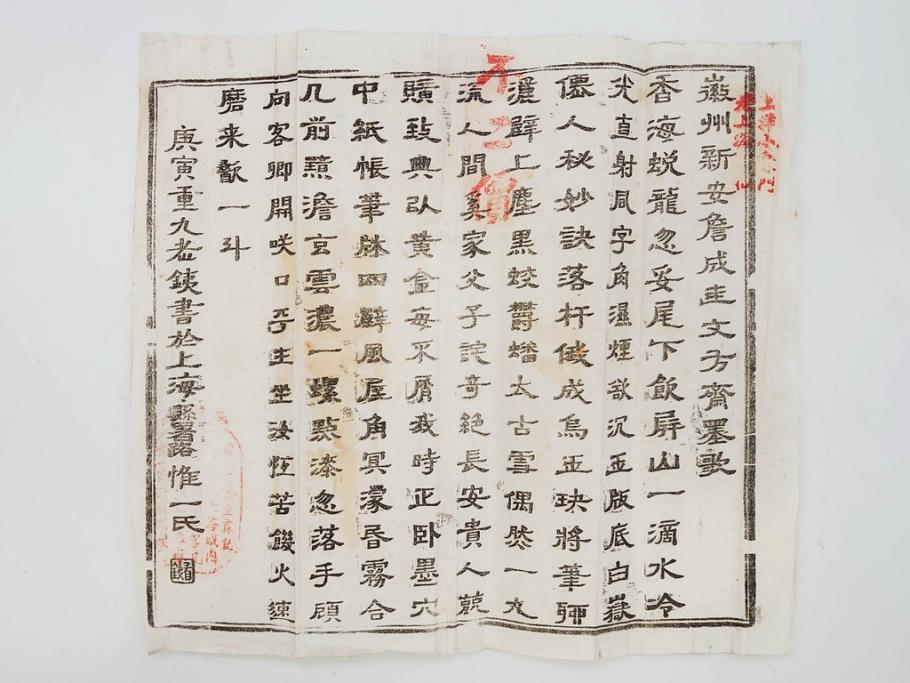 徽州新安詹成圭文方齋墨歌
香海蛻龍忽妥尾下飲屏山一滴水冷
光直射風字角濕煙欲沉玉版底白嶽
僊人秘妙訣落杵倏成烏玉玦將筆
灑壁上塵黑蛟鬱蟠太古雪偶然一丸
流人間奚家父子詫奇絕長安貴人競
購致興以黃金每不屑我時正臥墨穴
中紙帳筆牀四壁風屋角冥濛昏霧合
几前黯澹玄雲濃一螺點漆忽落手頋
向客卿開咲口平生坐汝恆苦饑火速
磨来歙一斗
庚寅重九老鐵書於上海縣署路惟一氏
不二價